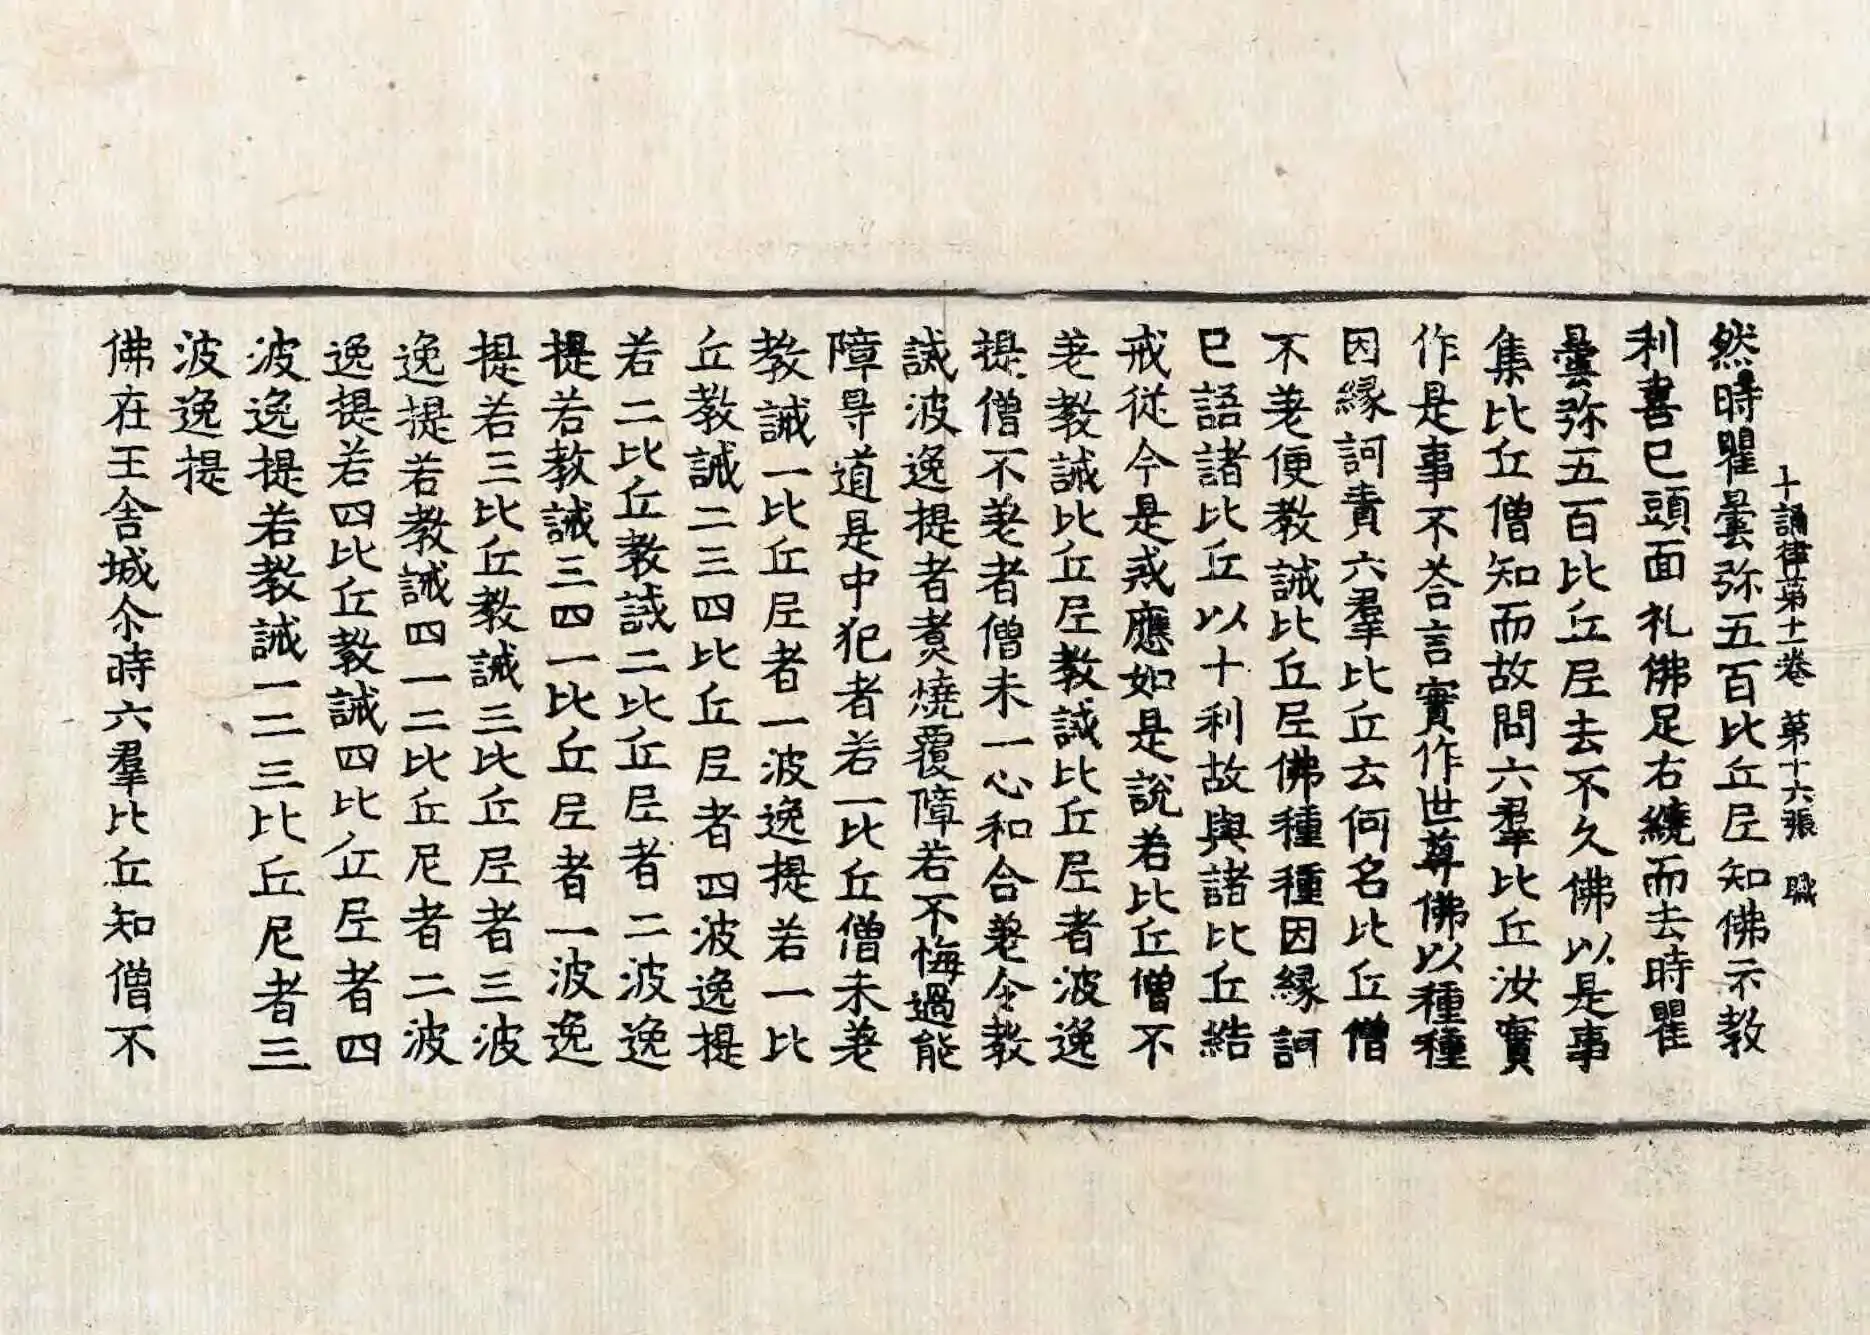 十誦律苐十一卷 苐十六張 職
然時瞿曇弥五百比丘尼知佛示教
利喜已頭面礼佛足右繞而去時瞿
曇弥五百比丘尼去不久佛以是事
集比丘僧知而故問六羣比丘汝實
作是事不荅言實作世尊佛以種種
因縁訶責六羣比丘云何名比丘僧
不差便教誡比丘尼佛種種因縁訶
已語諸比丘以十利故與諸比丘結
戒從今是戒應如是說若比丘僧不
差教誡比丘尼教誡比丘尼者波逸
提僧不差者僧未一心和合差令教
誡波逸提者煮燒覆障若不悔過能
障㝵道是中犯者若一比丘僧未差
教誡一比丘尼者一波逸提若一比
丘教誡二三四比丘尼者四波逸提
若二比丘教誡二比丘尼者二波逸
提若教誡三四一比丘尼者一波逸
提若三比丘教誡三比丘尼者三波
逸提若教誡四一二比丘尼者二波
逸提若四比丘教誡四比丘尼者四
波逸提若教誡一二三比丘尼者三
波逸提
佛在王舍城尒時六羣比丘知僧不